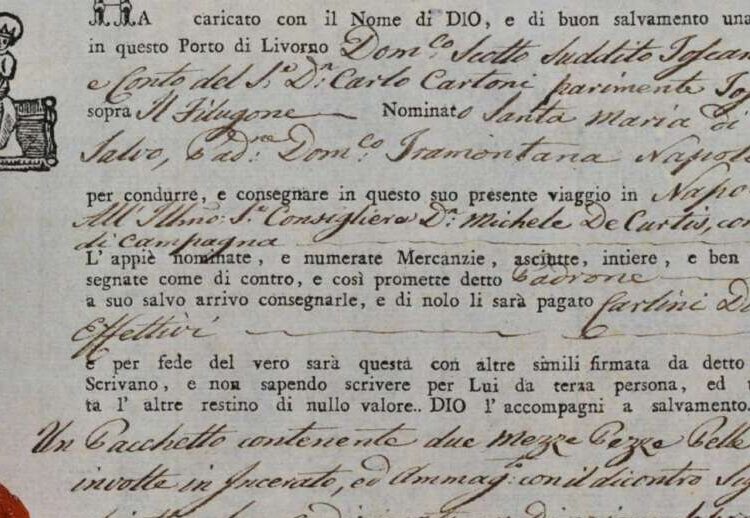 HA caricato con il Nome di DIO, e di buon salvamento una
in questo Porto di Livorno Dom.co Scotto Suddito Toscan
e Conto del S.r D.n Carlo Cartoni parimente Tos
sopra Il Filugone Nominato Santa Maria di
Salvo, Pad.ne Dom.co Tramontana Napol
per condurre, e consegnare in questo suo presente viaggio in Napo
All' Illmo. S.r Consigliere D.n Michele De Curtis, con
di campagna
L' appiè nominate, e numerate Mercanzie, asciutte, intiere, e ben
segnate come di contro, e così promette detto Padrone
a suo salvo arrivo consegnarle, e di nolo li sarà pagato Carlini D
Effettivi
e per fede del vero sarà questa con altre simili firmata da detto
Scrivano, e non sapendo scrivere per Lui da terza persona, ed
ta l' altre restino di nullo valore.. DIO l' accompagni a salvamento.
Un Pacchetto contenente due Mezze Pezze Pelle
involte in Incerato, ed Ammag.to con il dicontro Sig